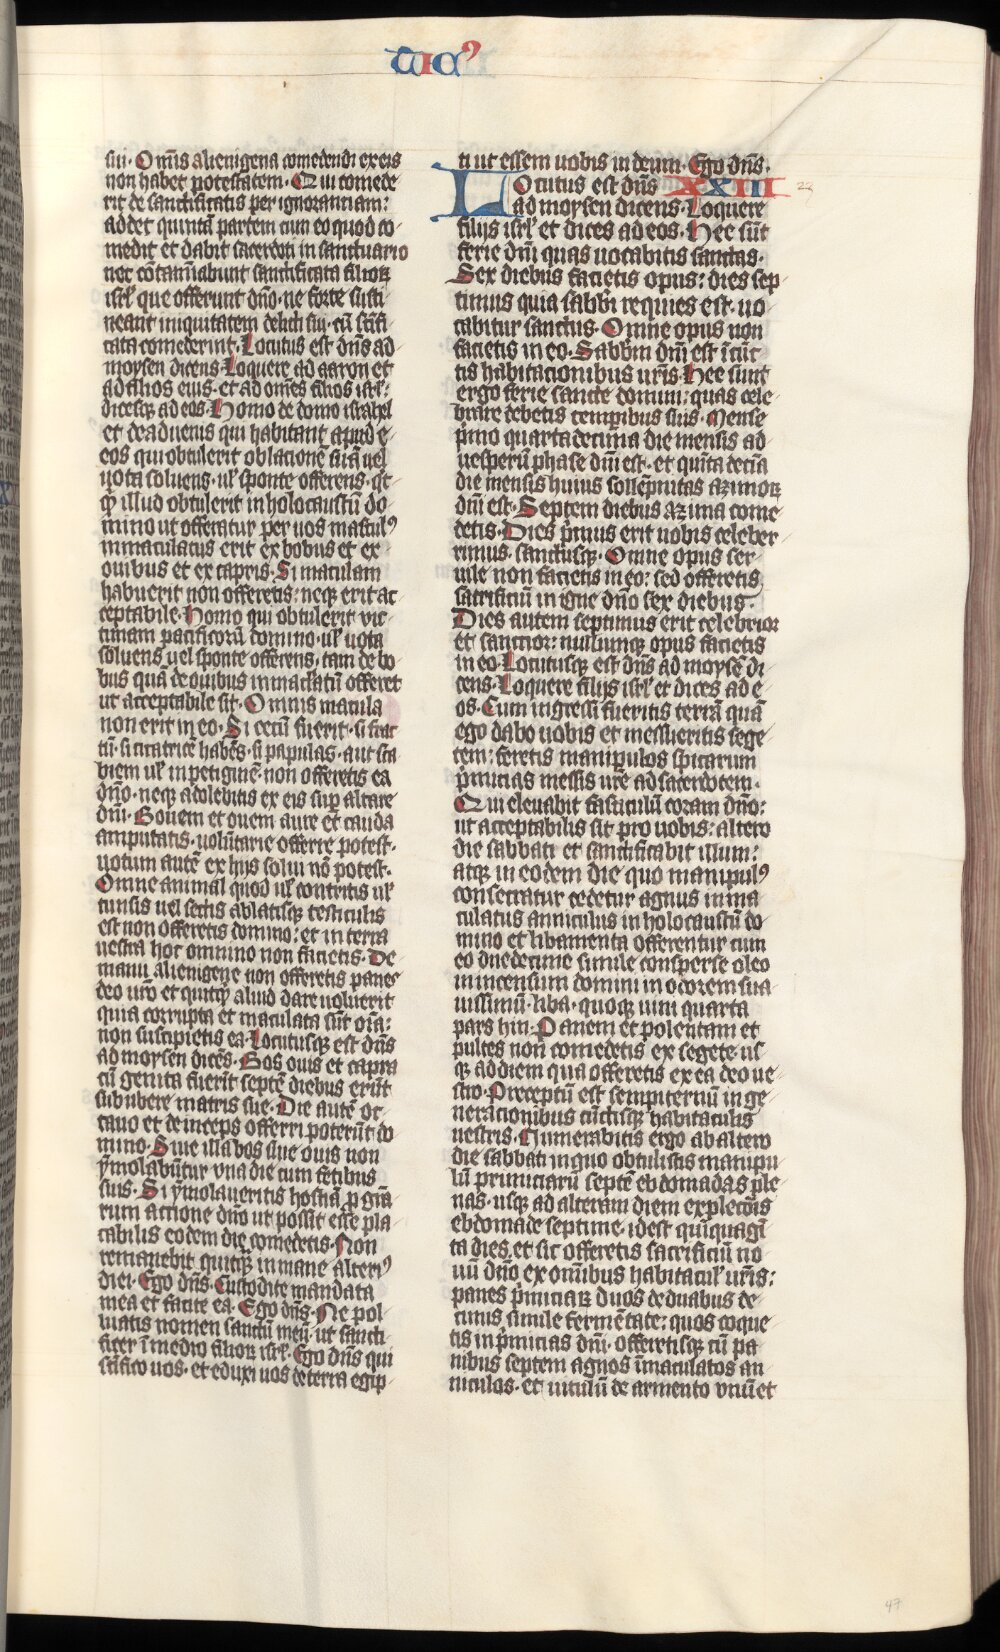 sui. Om̄is alienigena comedendi ex eis
non habet potestatem. Qui comede
rit de sanctificatis per ignorantiam:
addet quintā partem cum eo quod co
medit et dabit sacerdoti in sanctuario
nec cōtaminabunt sanctificata filioꝝ
isrl̄ que offerunt dn̄o. ne forte susti
neant iniquitatem delicti sui. cū scīfi
cata comederint. Locutus est dn̄s ad
moysen dicens. Loquere ad aaron et
ad filios eius. et ad om̄es filios isrl̄:
dicesqꝫ ad eos. Homo de domo israhel
et de aduenis qui habitant apud e
eos qui obtulerit oblationē suā uel
uota soluens. ul̄ sponte offerens. qt
qͥ illud obtulerit in holocaustū do
mino ut offeratur per uos masculꝰ
immaculatus erit ex bobus et ex
ouibus et ex capris. Si maculam
habuerit non offeretis: neqꝫ erit ac
ceptabile. Homo qui obtulerit vic
timam pacificorū domino. ul̄ uota
soluens uel sponte offerens. tam de bo
bus quā de ouibus inmaclatū offeret
ut acceptabile sit. Omnis macula
non erit in eo. Si cecū fuerit. si frac
tū. si cicatricē habēs. si papulas. aut sca
biem ul̄ inpetiginē. non offeretis ea
dn̄o. neqꝫ adolebitis ex eis sup̄ altare
dn̄i. Bouem et ouem aure et cauda
amputatis. uolūtarie offerre potest.
uotum autē ex hijs solui nō potest.
Omne animal quod ul̄ contritis ul̄
tunsis uel sectis ablatisqꝫ testiculis
est non offeretis domino: et in terra
uestra hoc omnino non facietis. De
manu alienigene non offeretis panes
deo ur̄o et quitqͥd aliud dare uoluerit
quia corrupta et maculata sūt oīa:
non suscipietis ea. Locutusqꝫ est dn̄s
ad moysen dicēs. Bos ouis et capra
cū genita fuerīt septē diebus erūt
sub ubere matris sue. Die autē oc
tauo et deinceps offerri poterūt do
mino. Siue illa bos siue ouis non
ymolabūtur vna die cum fetibus
suis. Si ymolaueritis hostiā p̄ grā
rum actione dn̄o ut possit esse pla
cabilis eodem die comedetis. Non
remanebit quitqͥ in mane alterꝰ
diei. Ego dn̄s. Custodite mandata
mea et facite ea. Ego dn̄s. Ne pol
luatis nomen sanctū meū. ut sancti
ficer ī medio filioꝝ isrl̄. Ego dn̄s qui
scīfico uos. et eduxi uos de terra egip
Leuiticꝰ
ti ut essem uobis in deum. Ego dn̄s.
Locutus est dn̄s XXIII
ad moysen dicens. Loquere
filijs isrl̄ et dices ad eos. Hec sūt
ferie dn̄i quas uocabitis sanctas.
Sex diebus facietis opus: dies sep
timus quia sabbī requies est. uo
cabitur sanctus. Omne opus non
facietis in eo. Sabbm̄ dn̄i est ī cūc
tis habitacionibus ur̄is. Hec sunt
ergo ferie sancte domini: quas cele
brare debetis temp̄ibus suis. Mense
p̄mo quarta decima die mensis ad
uesperū phase dn̄i est. et quīta decīa
die mensis huius sollēpnitas azimoꝝ
dn̄i est. Septem diebus azima come
detis. Dies p̄mus erit uobis celeber
rimus. sanctusqꝫ. Omne opus ser
uile non facietis in eo: sed offeretis
sacrificiū in igne dn̄o sex diebus.
Dies autem septimus erit celebrior
et sanctior: nullumqꝫ opus facietis
in eo. Locutusqꝫ est dn̄s ad moysē di
cens. Loquere filijs isrl̄ et dices ad e
os. Cum ingressi fueritis terrā quā
ego dabo uobis et messueritis sege
tem: feretis manipulos spicarum
p̄micias messis ur̄e ad sacerdotem.
Qui eleuabit fasciculū coram dn̄o:
ut acceptabilis sit pro uobis: altero
die sabbati et sanctificabit illum:
atqꝫ in eodem die quo manipulꝰ
consecratur cedetur agnus inma
culatus anniculus in holocaustū do
mino et libamenta offerentur cum
eo due decime simile consperse oleo
in incensum domini in odorem sua
uissimū. liba. quoqꝫ uini quarta
pars hin. Panem et polentam et
pultes non comedetis ex segete us
qꝫ ad diem qua offeretis ex ea deo ue
stro. Preceptū est sempiternū in ge
neracionibus cūctisqꝫ habitaculis
uestris. Numerabitis ergo ab altero
die sabbati in quo obtulistis manipu
lū primiciarū septē ebdomadas ple
nas. usqꝫ ad alteram diem expletōis
ebdomade septime. idest quīquagī
ta dies. et sic offeretis sacrificiū no
uū dn̄o ex om̄ibus habitacul̄ ur̄is:
panes p̄miciaꝝ duos de duabus de
cimis simile fermētate: quos coque
tis in p̄micias dn̄i. offeretisqꝫ cū pa
nibus septem agnos īmaculatos an
niculos. et uitulū de armento vnū et
47